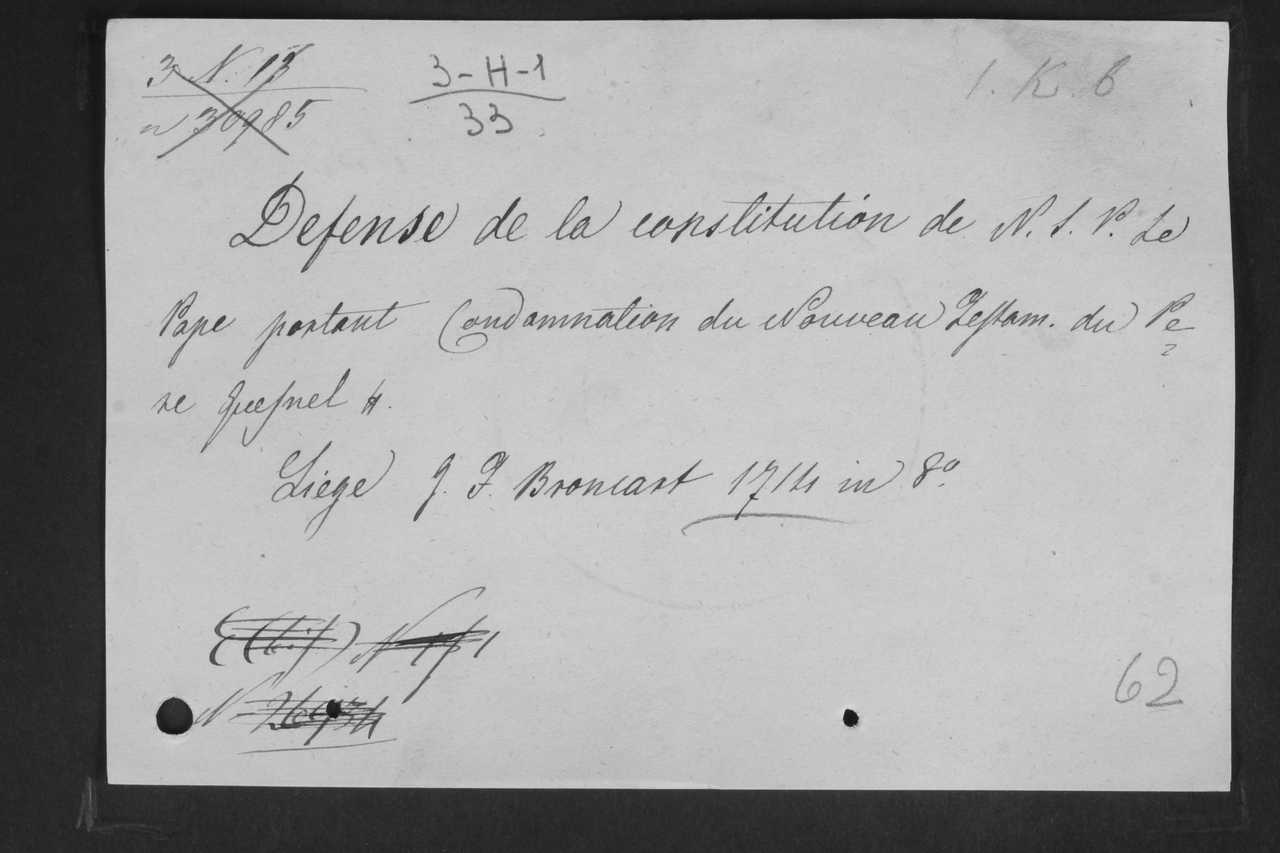 3 N. 13
n 30985
3-H-1
33
1. K. 6
Defense de la constitution de N. S. P. Le
Pape portant Condamnation du Nouveau Testam. du Pe=
re Quesnel #.
Liege J. F. Broncart 1714 in 8º
N
N 26934
62